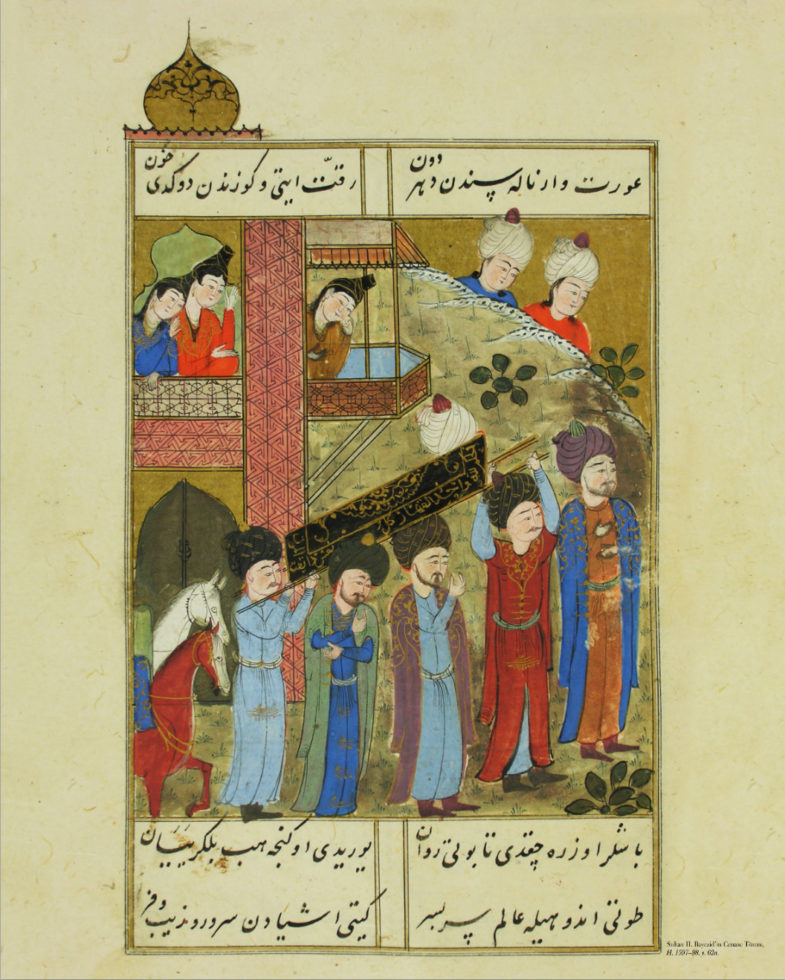 عورت وار ناله سندن دهر دون
رقّت ایتی و کوزندن دوکدی خون
باشلر اوزره چقدی تابوتی روان
یوریدی اوکنجه هب
طوتی اندوهیله عالم سر بسر
کیتی اشیادن سرور و زیب و فر
Sultan II. Bayezid'in Cenaze Töreni,
H. 1597-98, y. 62a.